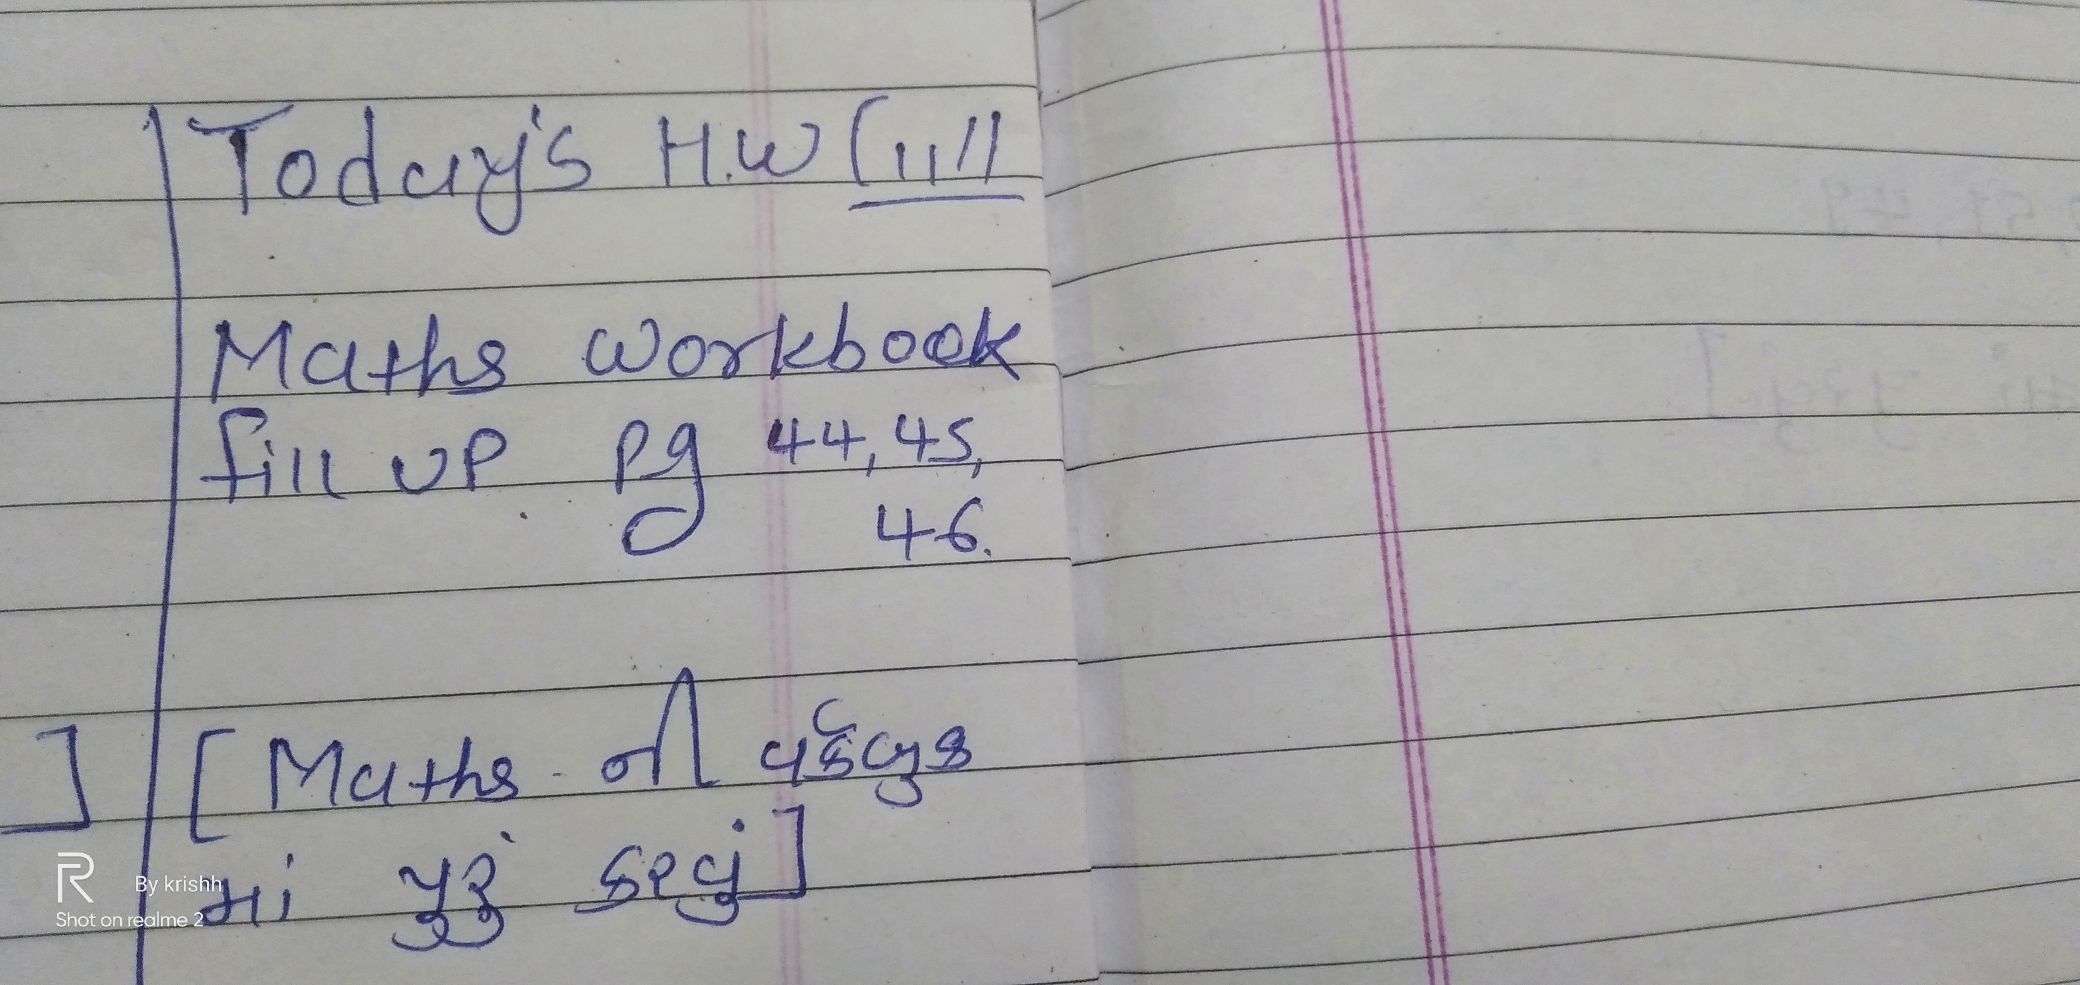 Today's H.W (11/1
Maths workbook
fill up pg 44, 45,
46.
] [Maths ની વર્કબુક
માં પુરું કરવું]
R By krishh
Shot on realme 2